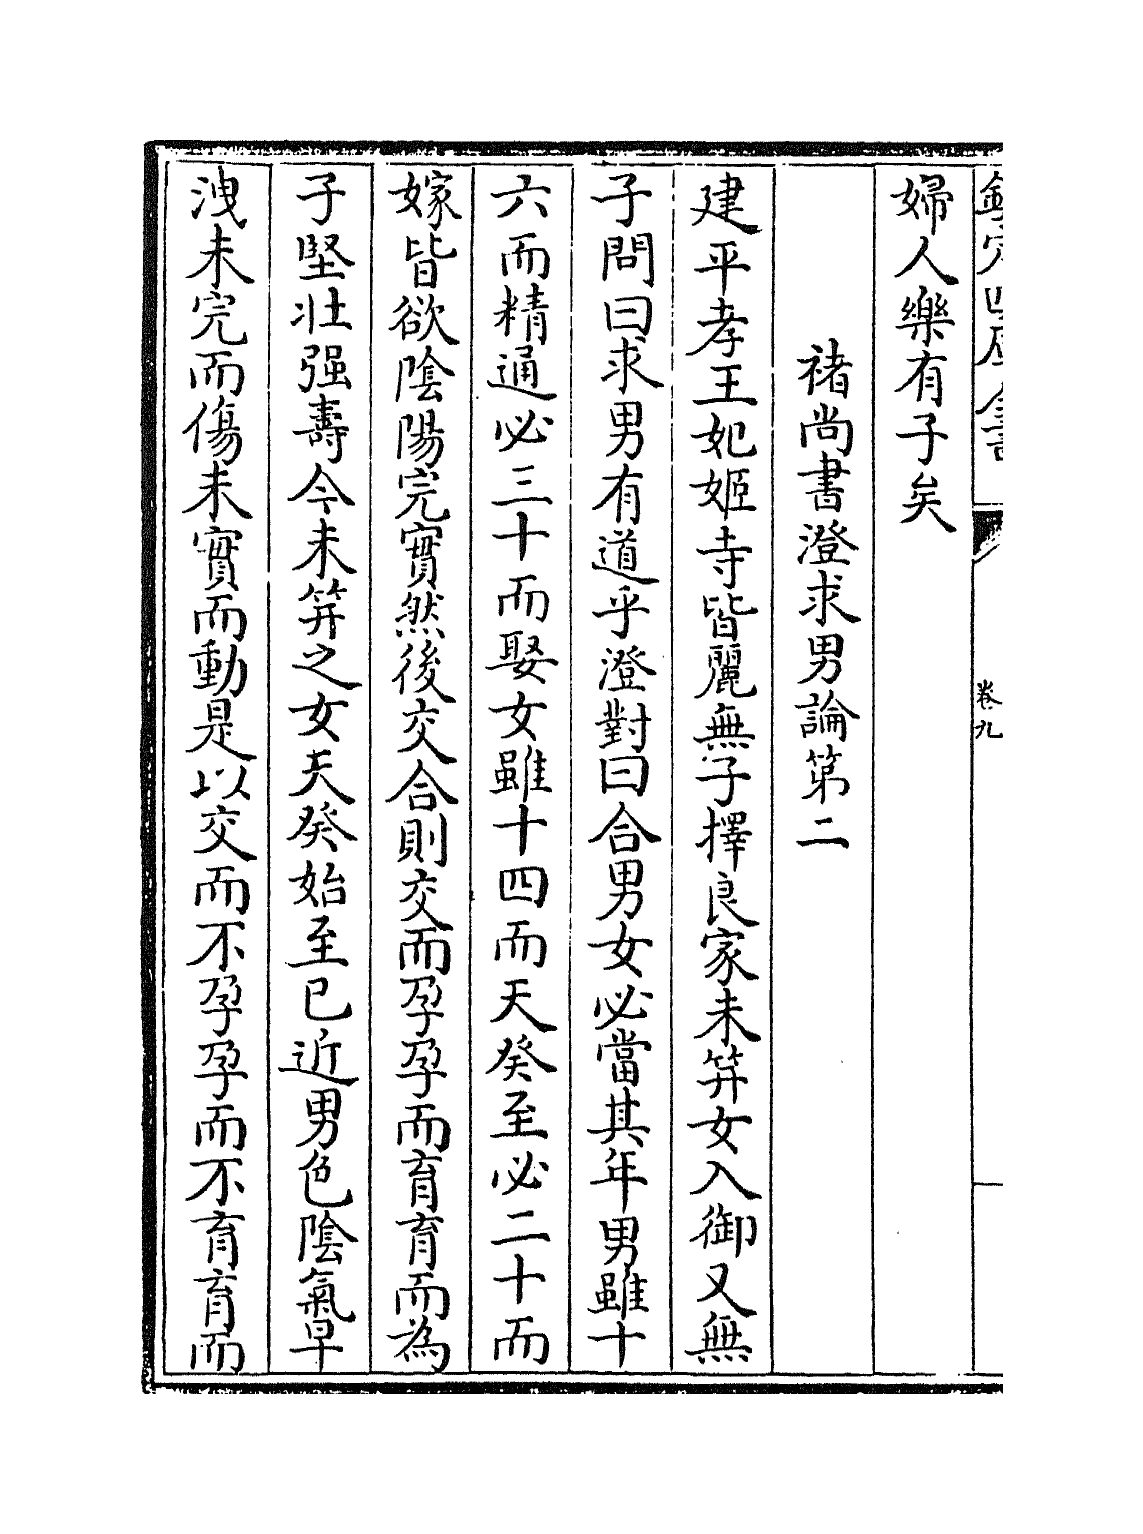 欽定四庫全書
卷九
婦人樂有子矣
褚尚書澄求男論第二
建平孝王妃姬寺皆麗無子擇良家未笄女入御又無
子問曰求男有道乎澄對曰合男女必當其年男雖十
六而精通必三十而娶女雖十四而天癸至必二十而
嫁皆欲陰陽完實然後交合則交而孕孕而育育而為
子堅壯强壽今未笄之女天癸始至已近男色陰氣早
洩未完而傷未實而動是以交而不孕孕而不育育而